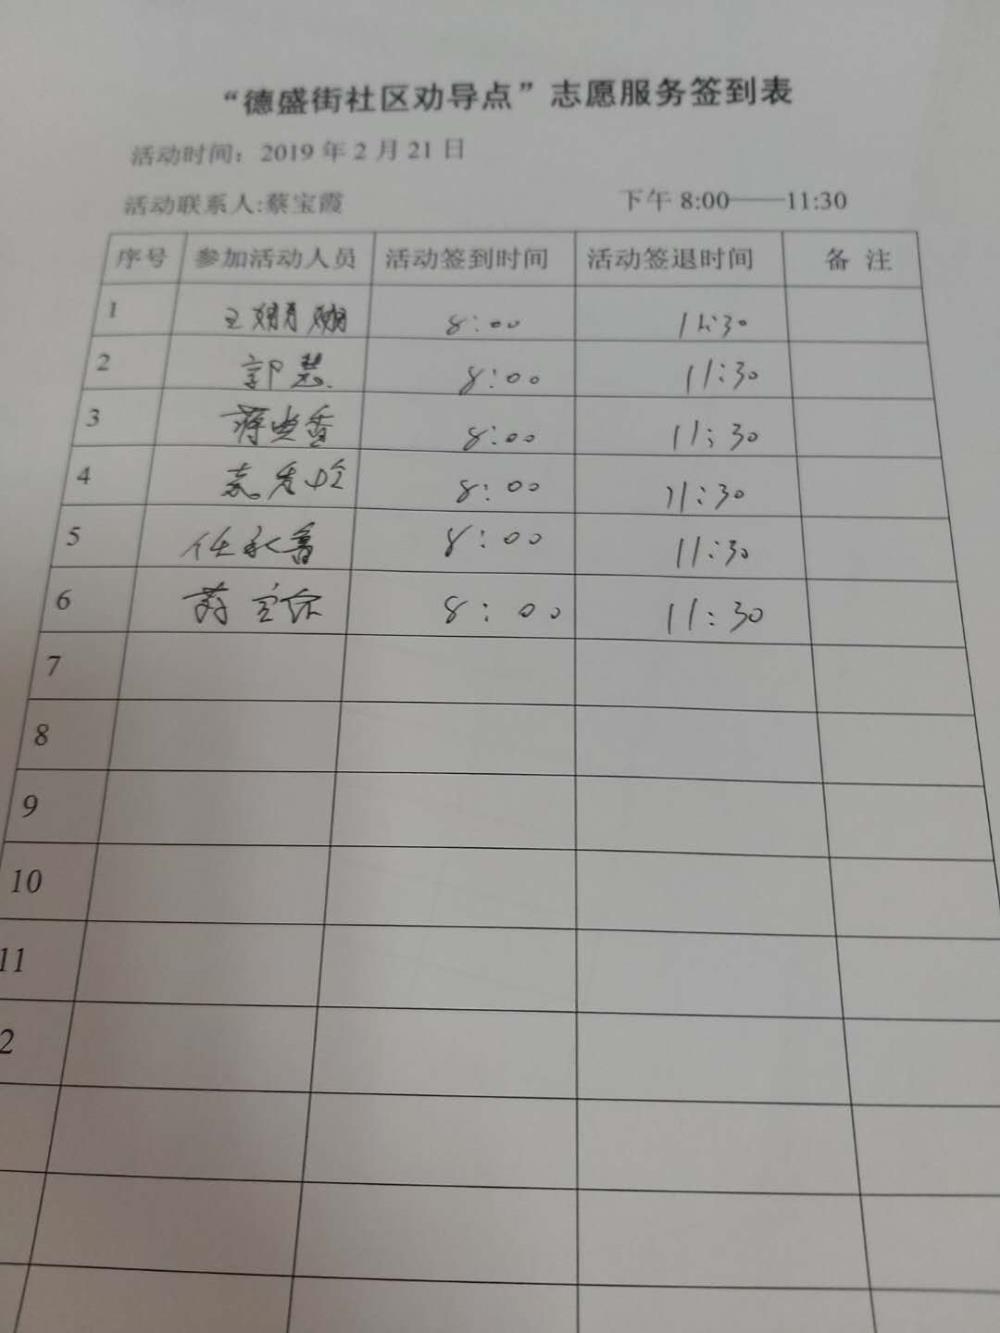 “德盛街社区劝导点”志愿服务签到表
活动时间：2019 年 2 月 21 日
活动联系人:蔡宝霞 下午 8:00——11:30
序号 参加活动人员 活动签到时间 活动签退时间 备 注
1 王娟娟 8:00 11:30
2 郭慧 8:00 11:30
3 8:00 11:30
4 8:00 11:30
5 任永鲁 8:00 11:30
6 8:00 11:30
7
8
9
10
11
2